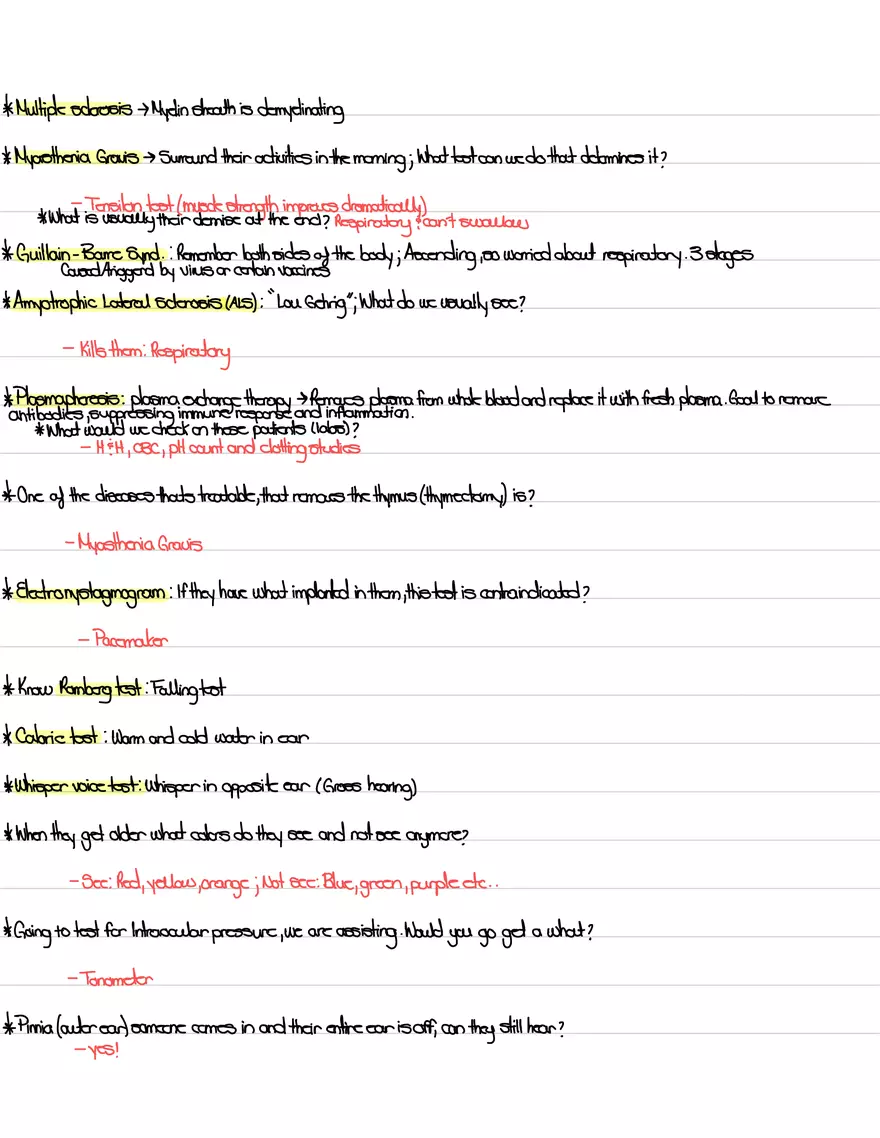 *Multiple sclerosis → Myelin sheath is demyelinating
*Myasthenia Gravis → Surround their activities in the morning; What test can we do that determines it?
- Tensilon test (muscle strength improves dramatically)
*What is usually their demise at the end? Respiratory & can't swallow
*Guillain-Barre Synd.: Remember both sides of the body; Ascending, so worried about respiratory. 3 stages
Caused/triggered by virus or certain vaccines
*Amyotrophic Lateral Sclerosis (ALS): "Lou Gehrig"; What do we usually see?
- Kills them: Respiratory
*Plasmapheresis: plasma exchange therapy → Removes plasma from whole blood and replace it with fresh plasma. Goal to remove
antibodies, suppressing immune response and inflammation.
*What would we check on these patients (labs)?
- H&H, CBC, pH count and clotting studies
*One of the diseases thats treatable, that removes the thymus (thymectomy) is?
- Myasthenia Gravis
*Electronystagmogram: If they have what implanted in them, this test is contraindicated?
- Pacemaker
*Know Romberg test: Falling test
*Caloric test: Warm and cold water in ear
*Whisper voice test: Whisper in opposite ear (Gross hearing)
*When they get older what colors do they see and not see anymore?
- See: Red, yellow, orange; Not see: Blue, green, purple etc..
*Going to test for Intraocular pressure, we are assisting. Would you go get a what?
- Tonometer
*Pinnia (outer ear) someone comes in and their entire ear is off, can they still hear?
- yes!